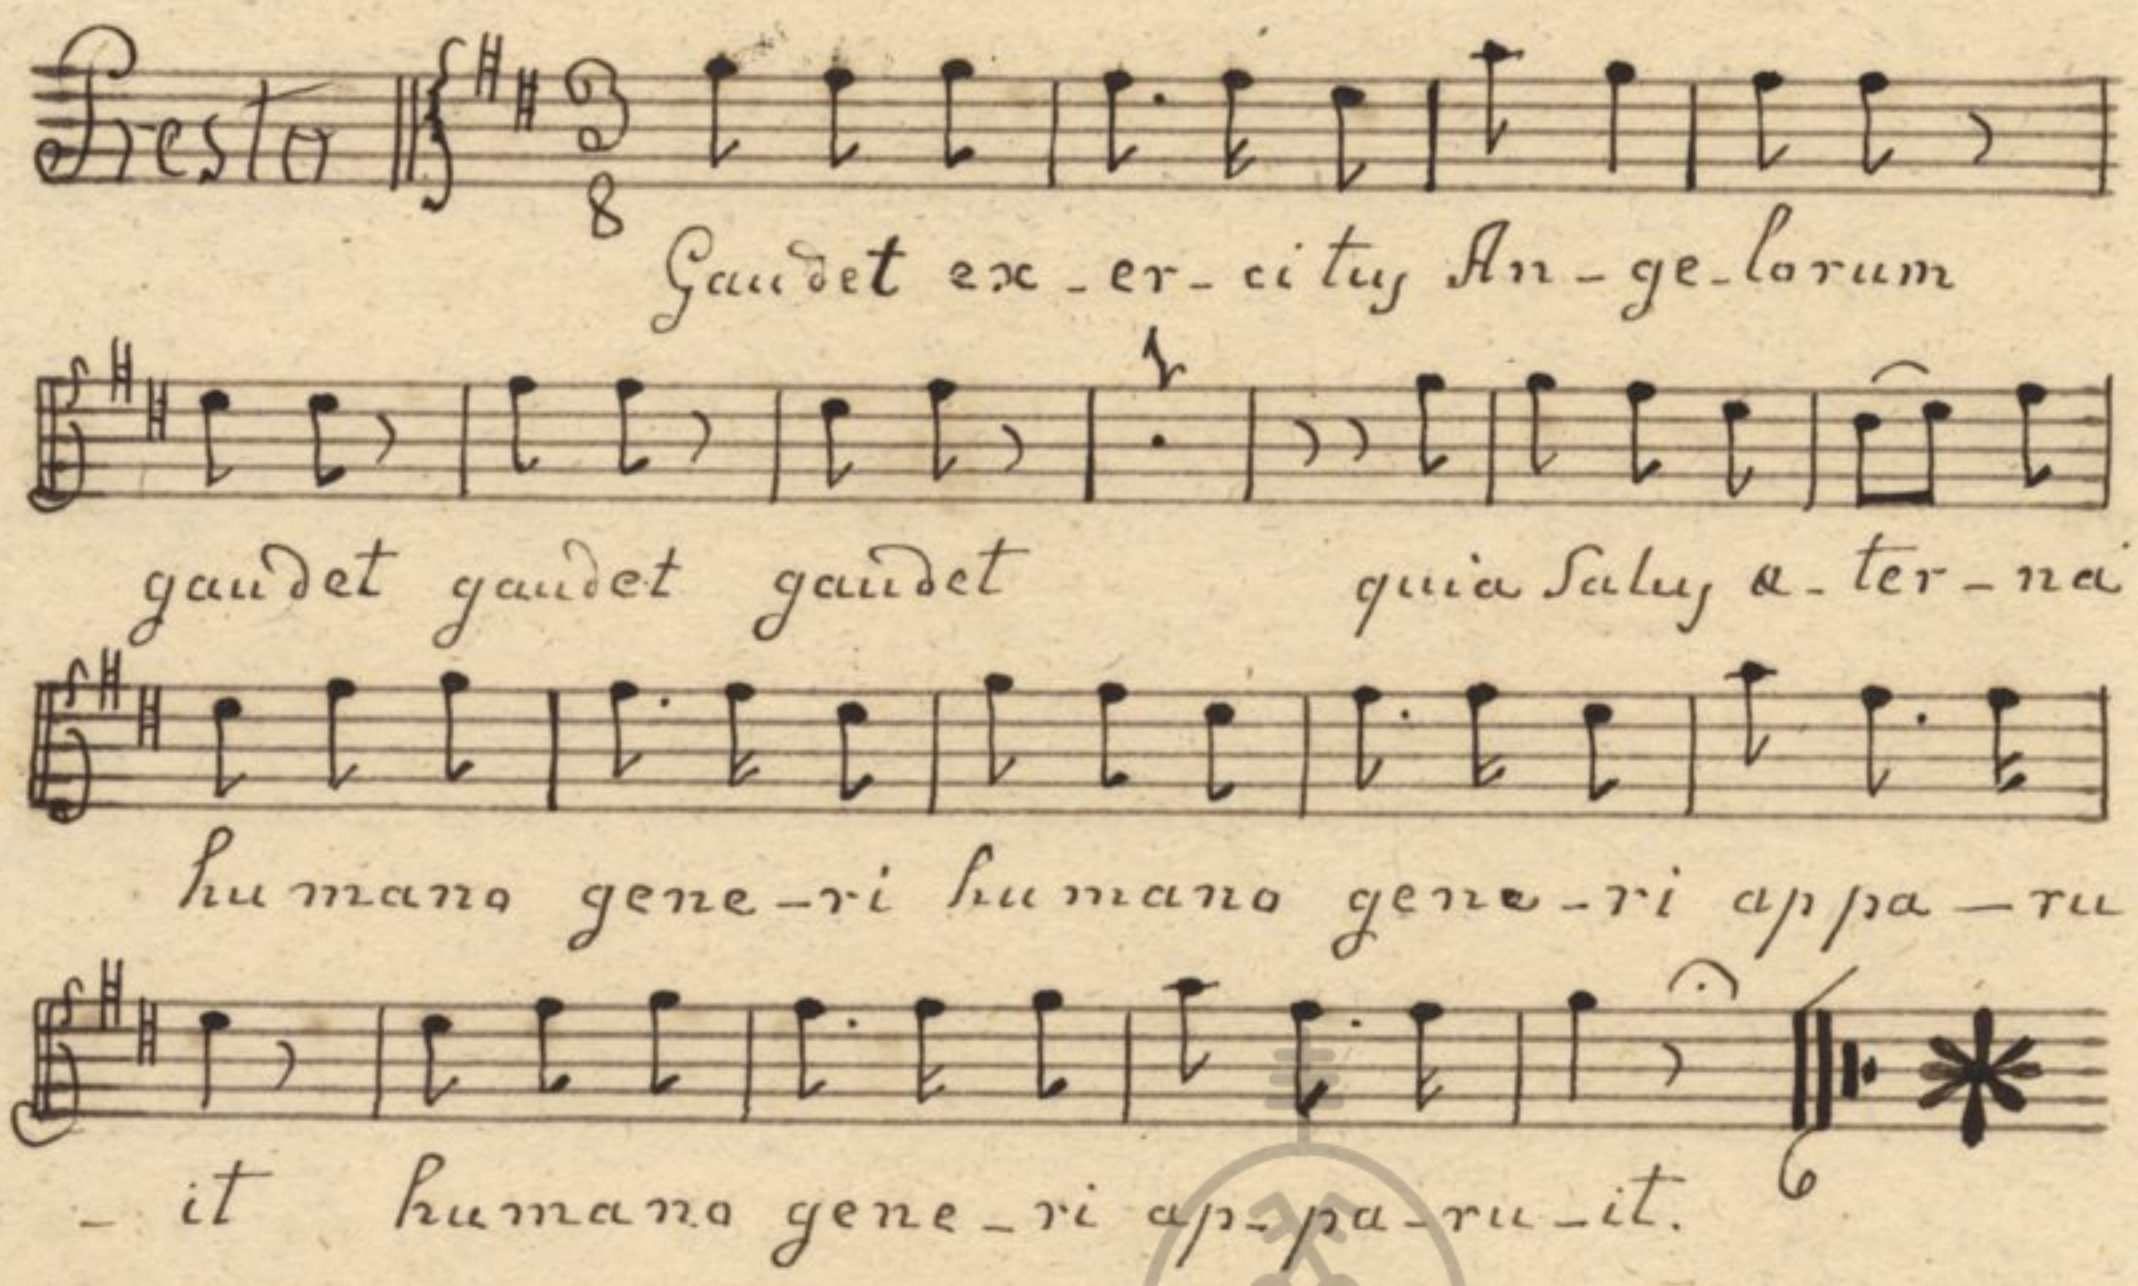 Presto 3 8
Gaudet ex-er-citus An-ge-lorum
gaudet gaudet gaudet quia Salus æ-ter-na
humano gene-ri humano gene-ri appa-ru
-it humano gene-ri ap-pa-ru-it.